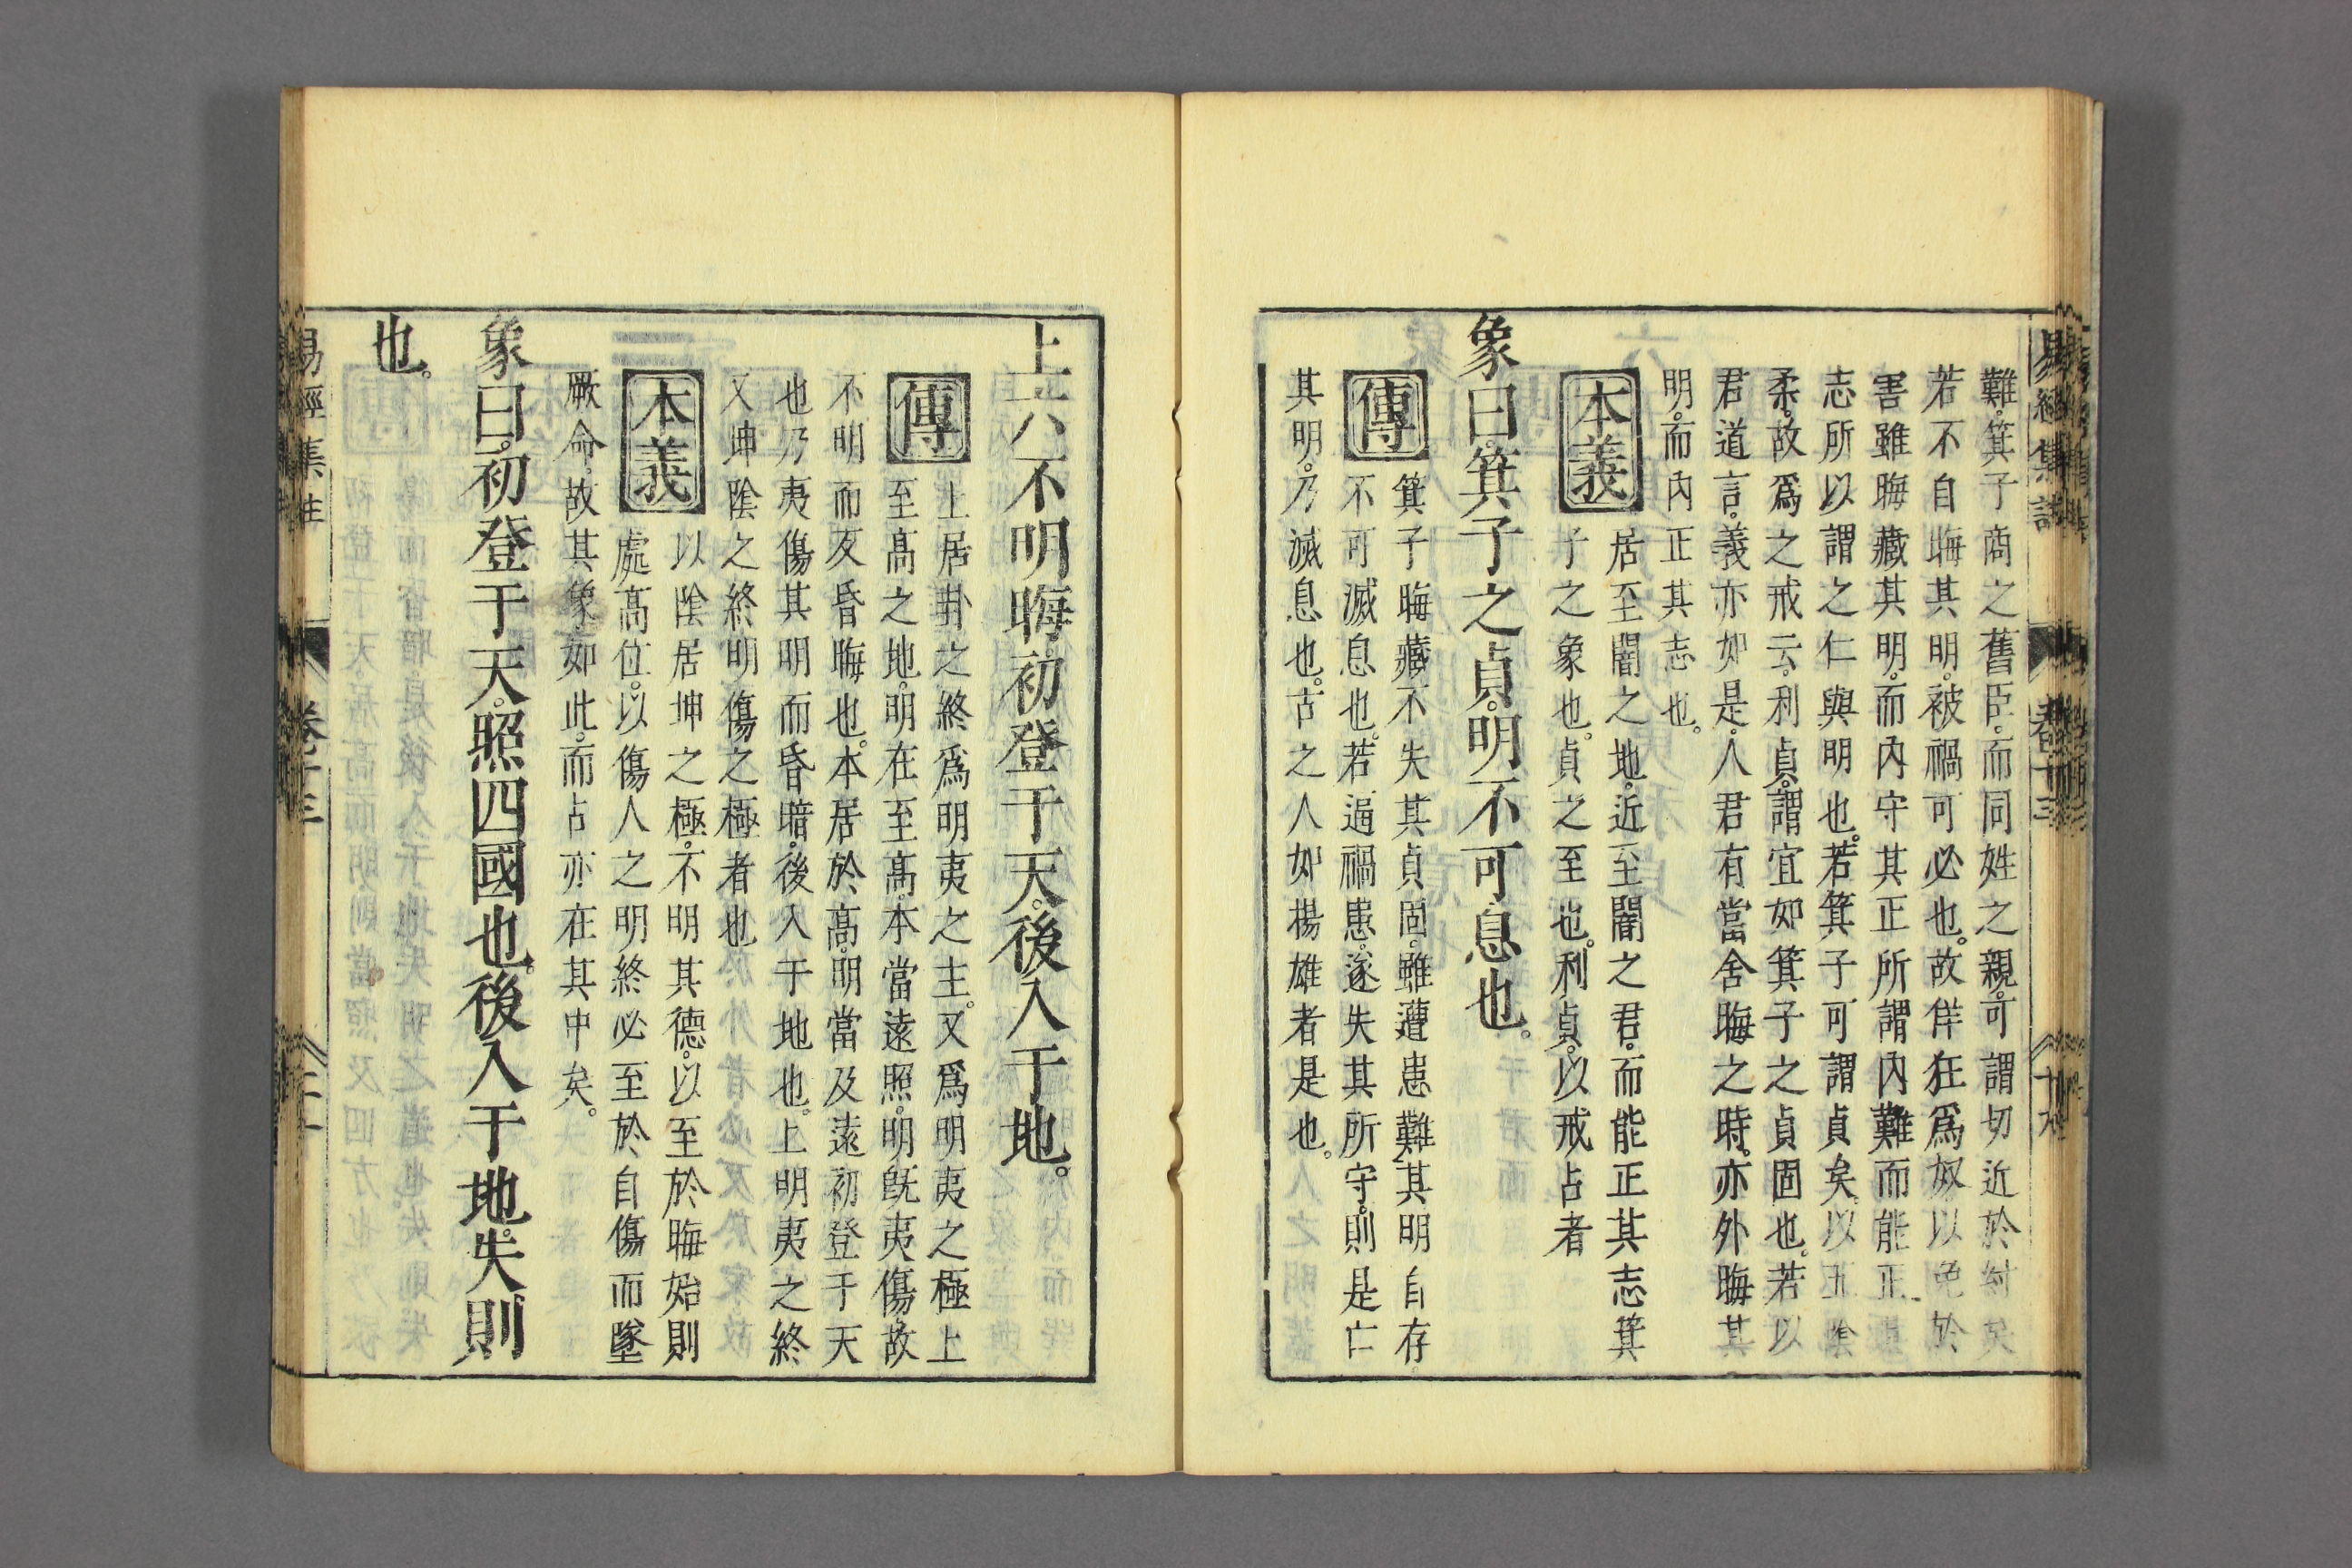 易經集註 卷十三
難。箕子商之舊臣。而同姓之親。可謂切近於紂矣
若不自晦其明。被禍可必也。故佯狂爲奴以免於
害雖晦藏其明。而內守其正所謂內難而能正其
志所以謂之仁與明也。若箕子可謂貞矣。以五陰
柔。故爲之戒云。利貞。謂宜如箕子之貞固也。若以
君道言。義亦如是。人君有當舍晦之時。亦外晦其
明。而內正其志也。
本義 居至闇之地。近至闇之君。而能正其志箕
子之象也。貞之至也。利貞。以戒占者
象曰。箕子之貞。明不可息也。
傳 箕子晦藏不失其貞固。雖遭患難。其明自存。
不可滅息也。若逼禍患。遂失其所守。則是亡
其明。乃滅息也。古之人如揚雄者是也。
上六不明晦。初登于天。後入于地。
傳 上居卦之終爲明夷之主。又爲明夷之極上
至高之地。明在至高。本當遠照。明旣夷傷。故
不明而反昏晦也。本居於高。明當及遠初登于天
也乃夷傷其明而昏暗。後入于地也。上明夷之終
又坤陰之終明傷之極者也
本義 以陰居坤之極。不明其德。以至於晦始則
處高位。以傷人之明終必至於自傷而墜
厥命。故其象如此。而占亦在其中矣。
象曰。初登于天。照四國也。後入于地。失則
也。
易經集註 卷十三